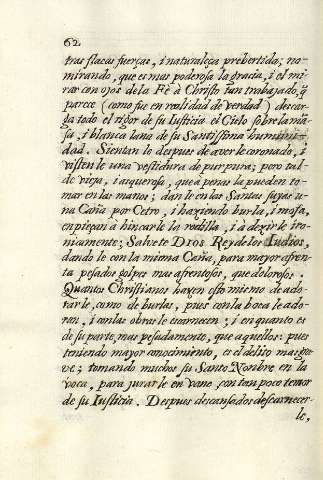 62
tras flacas fuerças, i naturaleça prebertida; no
mirando, que es mas poderosa la gracia, i el mi-
rar con ojos de la Fè à Christo tan trabajado, q̃
parece (como fue en realidad de verdad) descar-
ga todo el rigor de su Iusticia el Cielo sobre la mã-
sa, i blanca lana de su Santissima humani-
dad. Sientan lo despues de averle coronado, i
visten le una vestidura de purpura; pero tal
de vieja, i asquerosa, que à penas la pueden to-
mar en las manos; dan le en las Santas suyas u-
na Caña por Cetro, i haziendo burla, i mofa,
enpieçan à hincarle la rodilla, i à dezirle iro-
nicamente; Salvete Dios Rey de los Iudios,
dando le con la misma Caña, para mayor afren-
ta pesados golpes mas afrentosos, que dolorosos.
Quantos Christianos hazen esto mismo de ado-
rarle, como de burlas, pues con la boca le ado-
ran, i con las obras le escarnecen; i en quanto es
de su parte, mas pesadamente, que aquellos: pues
teniendo mayor conocimiento, es el delito mas gra-
ve; tomando muchos su Santo Nonbre en la
voca, para jurarle en vano con tan poco temor
de su Iusticia. Despues descansados de escarnecer-
le,